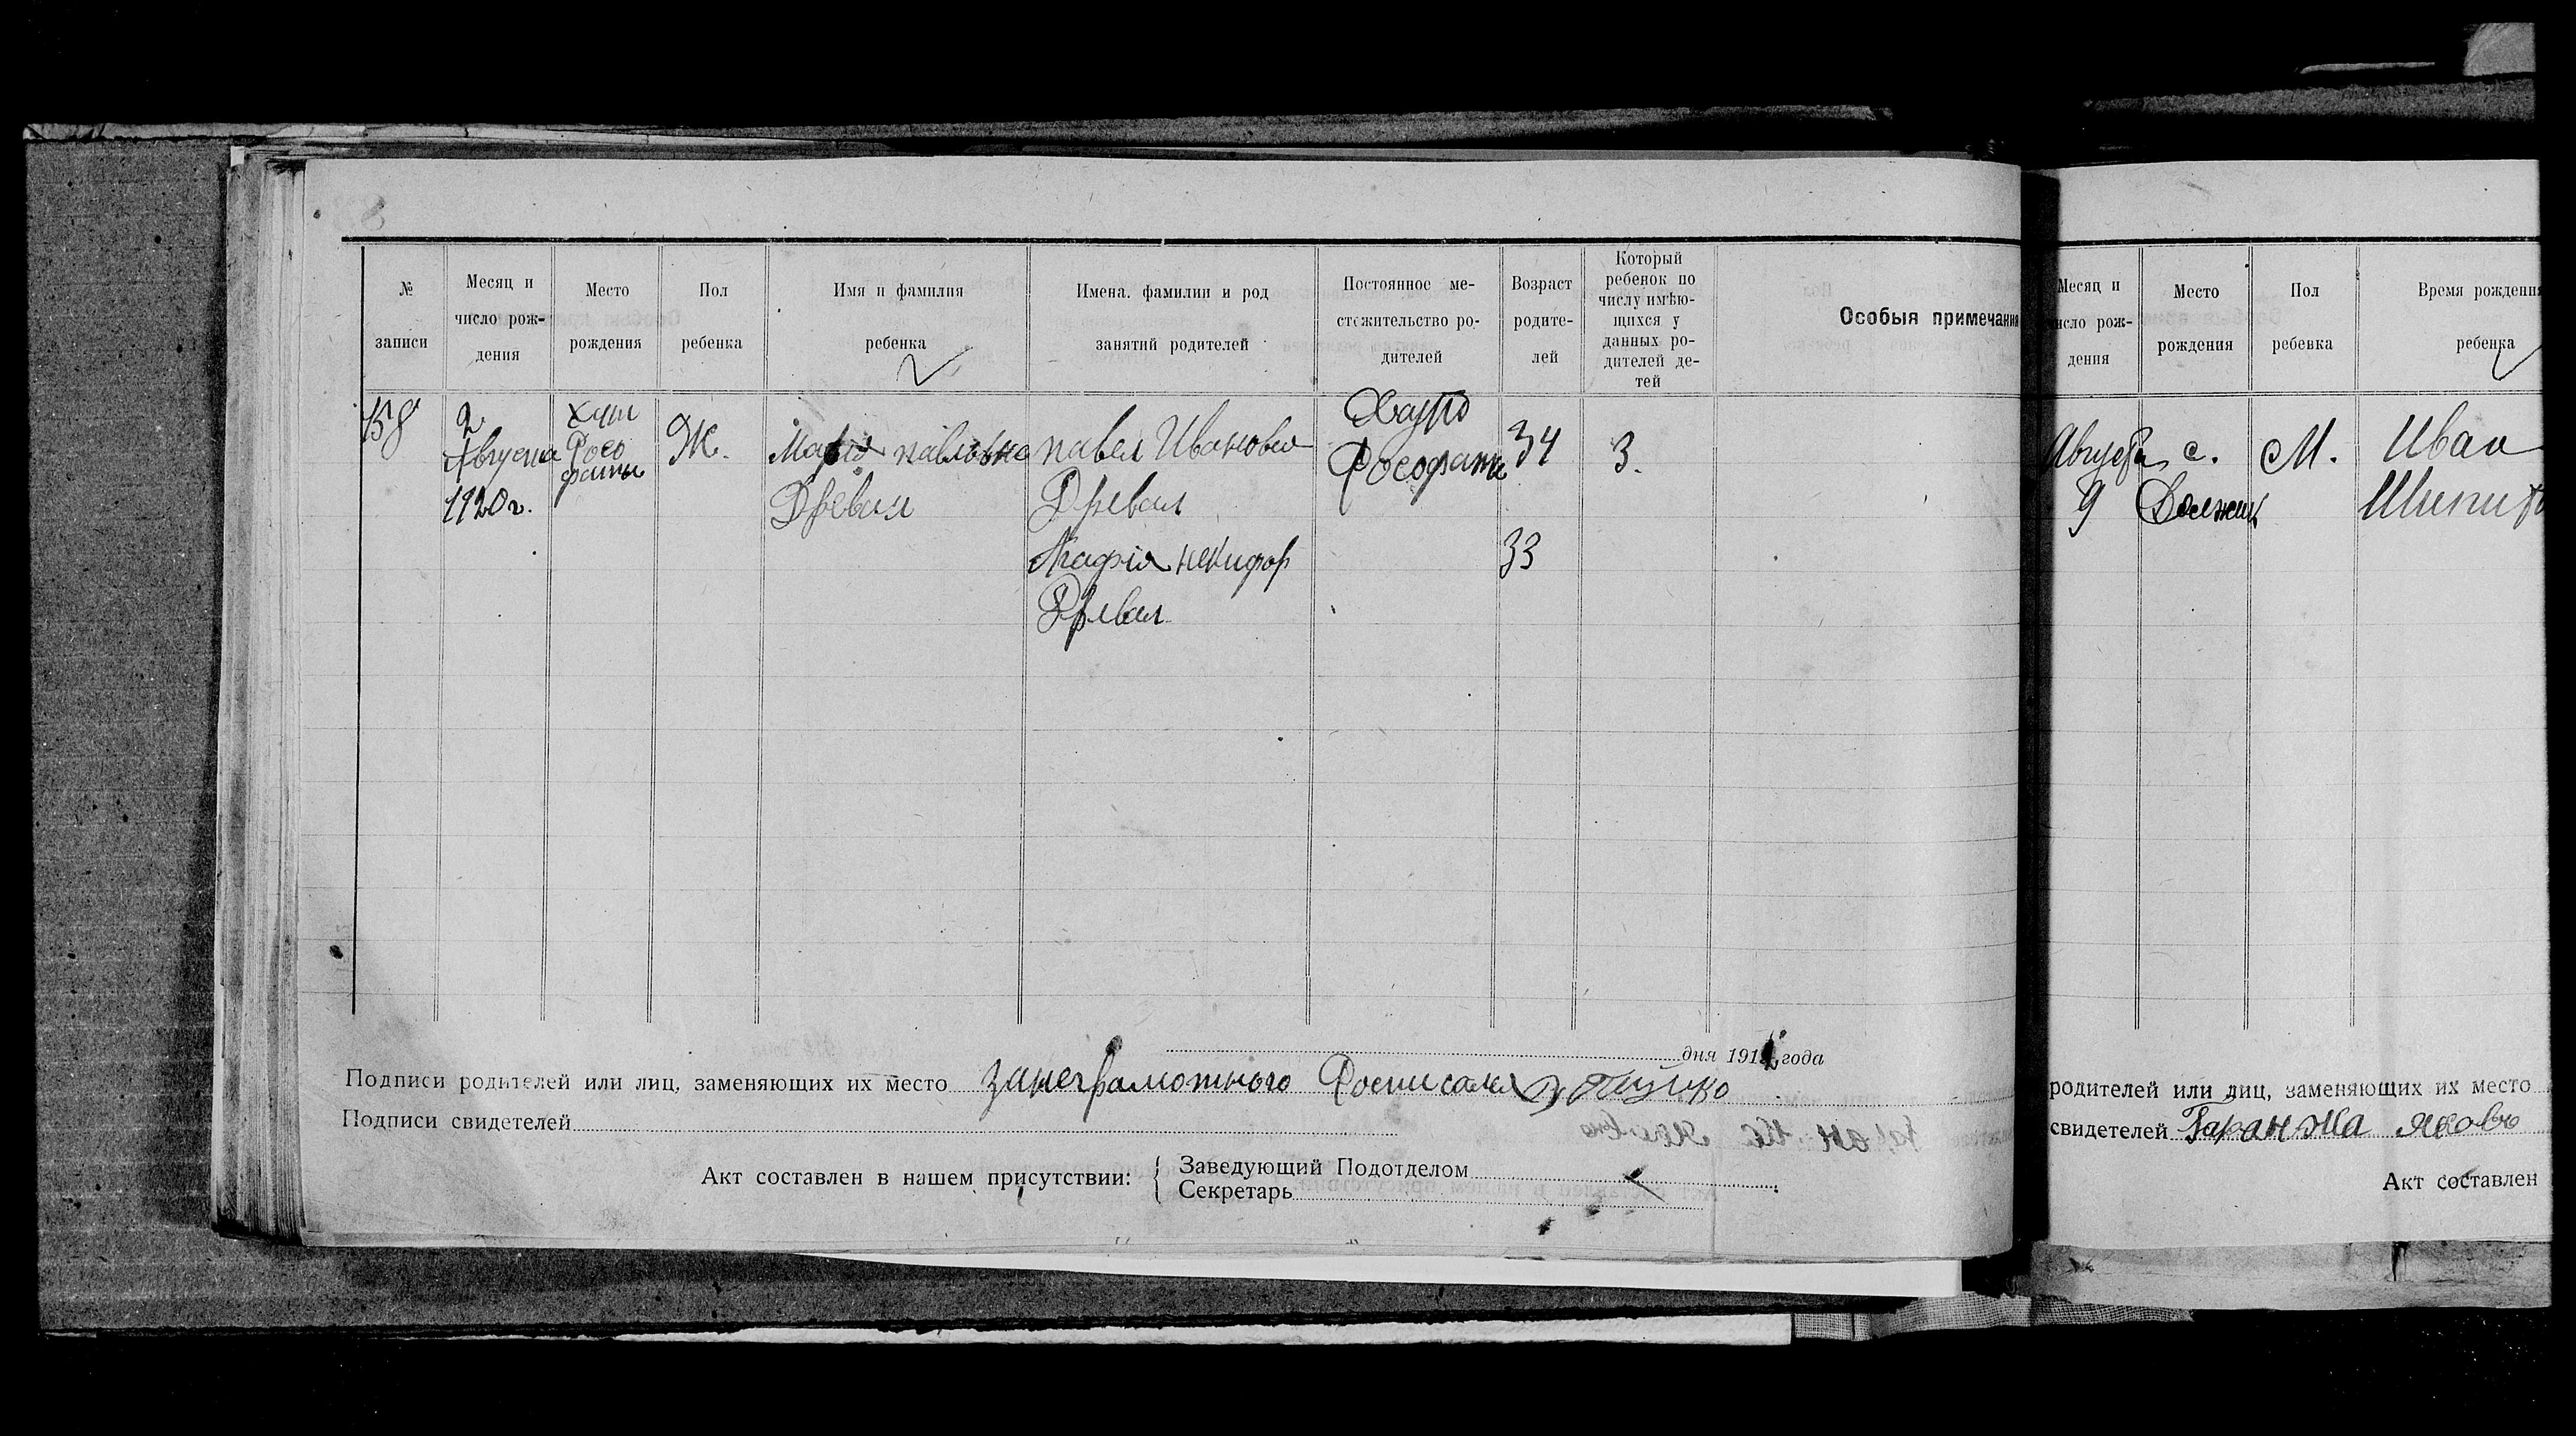 №
записи
Месяц и
число рож-
дения
Место
рождения
Пол
ребенка
Имя и фамилия
ребенка
Имена, фамилии и род
занятий родителей
Постоянное ме-
стожительство ро-
дителей
Возраст
родите-
лей
Который
ребенок по
числу имѣю-
щихся у
данных ро-
дителей де-
тей
Особыя примечания
158
2
Августа
1920 г.
хут
Росо
фаты
Ж.
Марія павловна
Древал
павел Иванович
Древал
Агафія никифор
Древал
Рософаты
34
33
3.
дня 191 года
Подписи родителей или лиц, заменяющих их место занеграмотного Росписался
Подписи свидетелей
Акт составлен в нашем присутствии:
Заведующий Подотделом
Секретарь
Месяц и
число рож-
дения
Место
рождения
Пол
ребенка
Время рождения
ребенка
Августа
9
с.
Должик
М.
Иван
родителей или лиц, заменяющих их место
свидетелей Гаранжа Яков
Акт составлен